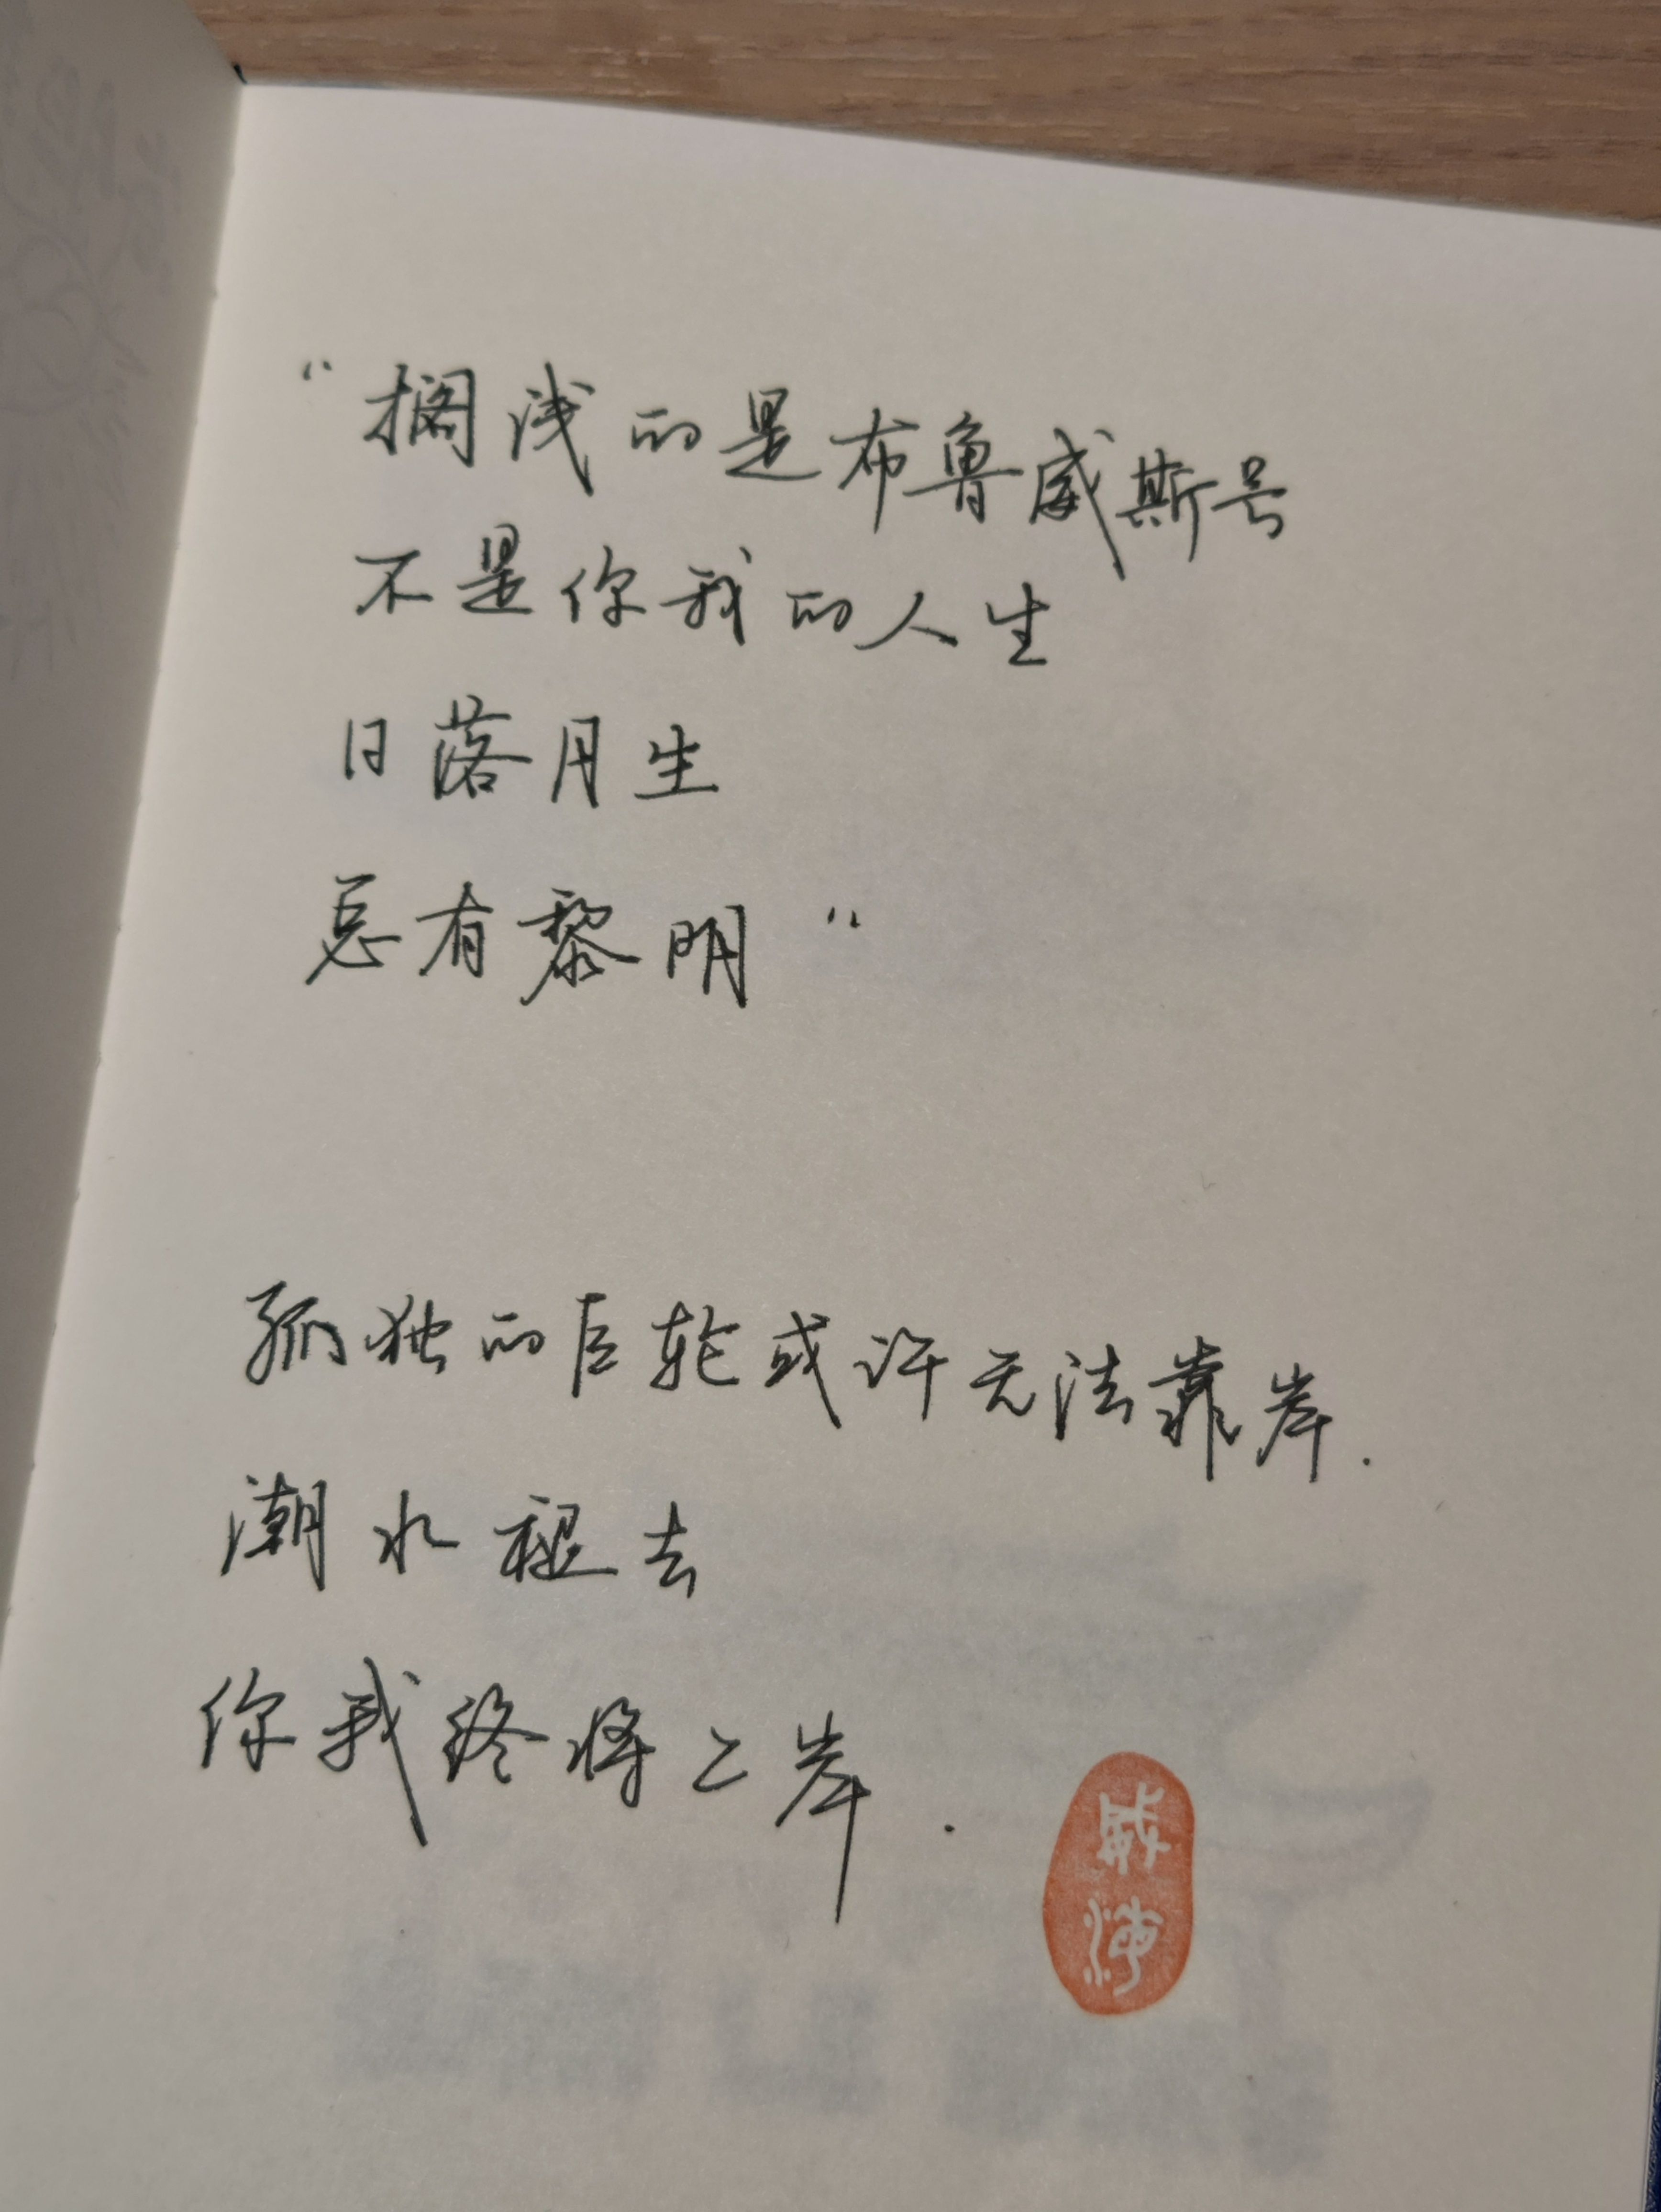 “搁浅的是布鲁威斯号
不是你我的人生
日落月生
总有黎明”
孤独的巨轮或许无法靠岸.
潮水褪去
你我终将上岸.
威海